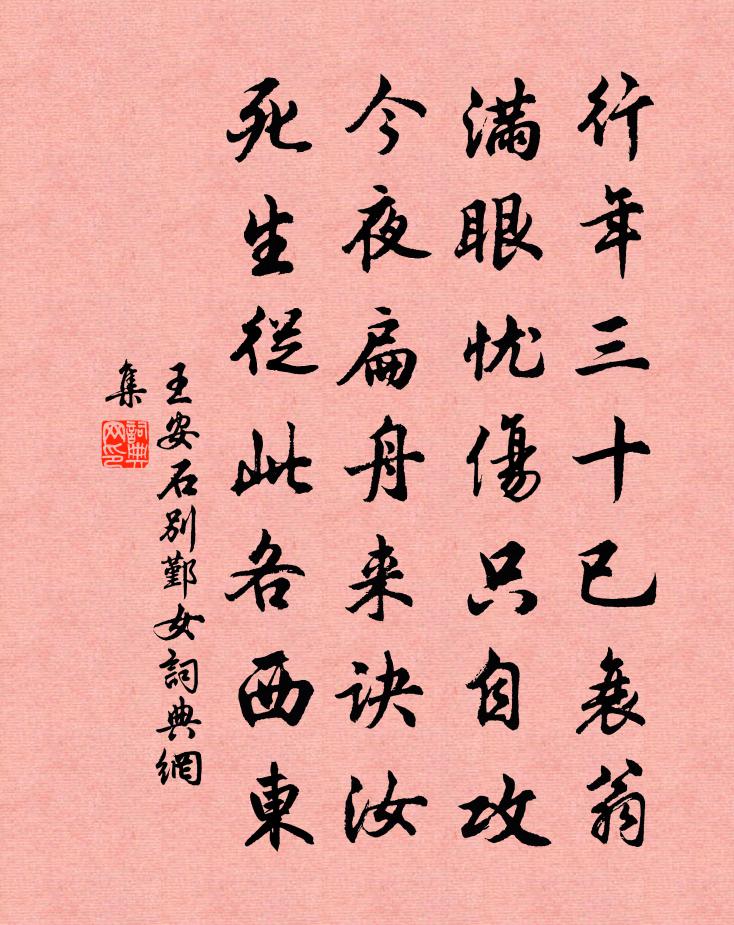 行年三十已衰翁
滿眼忧傷只自攻
今夜扁舟来诀汝
死生從此各西東
王安石别鄞女詞典網
集
詞典
网印